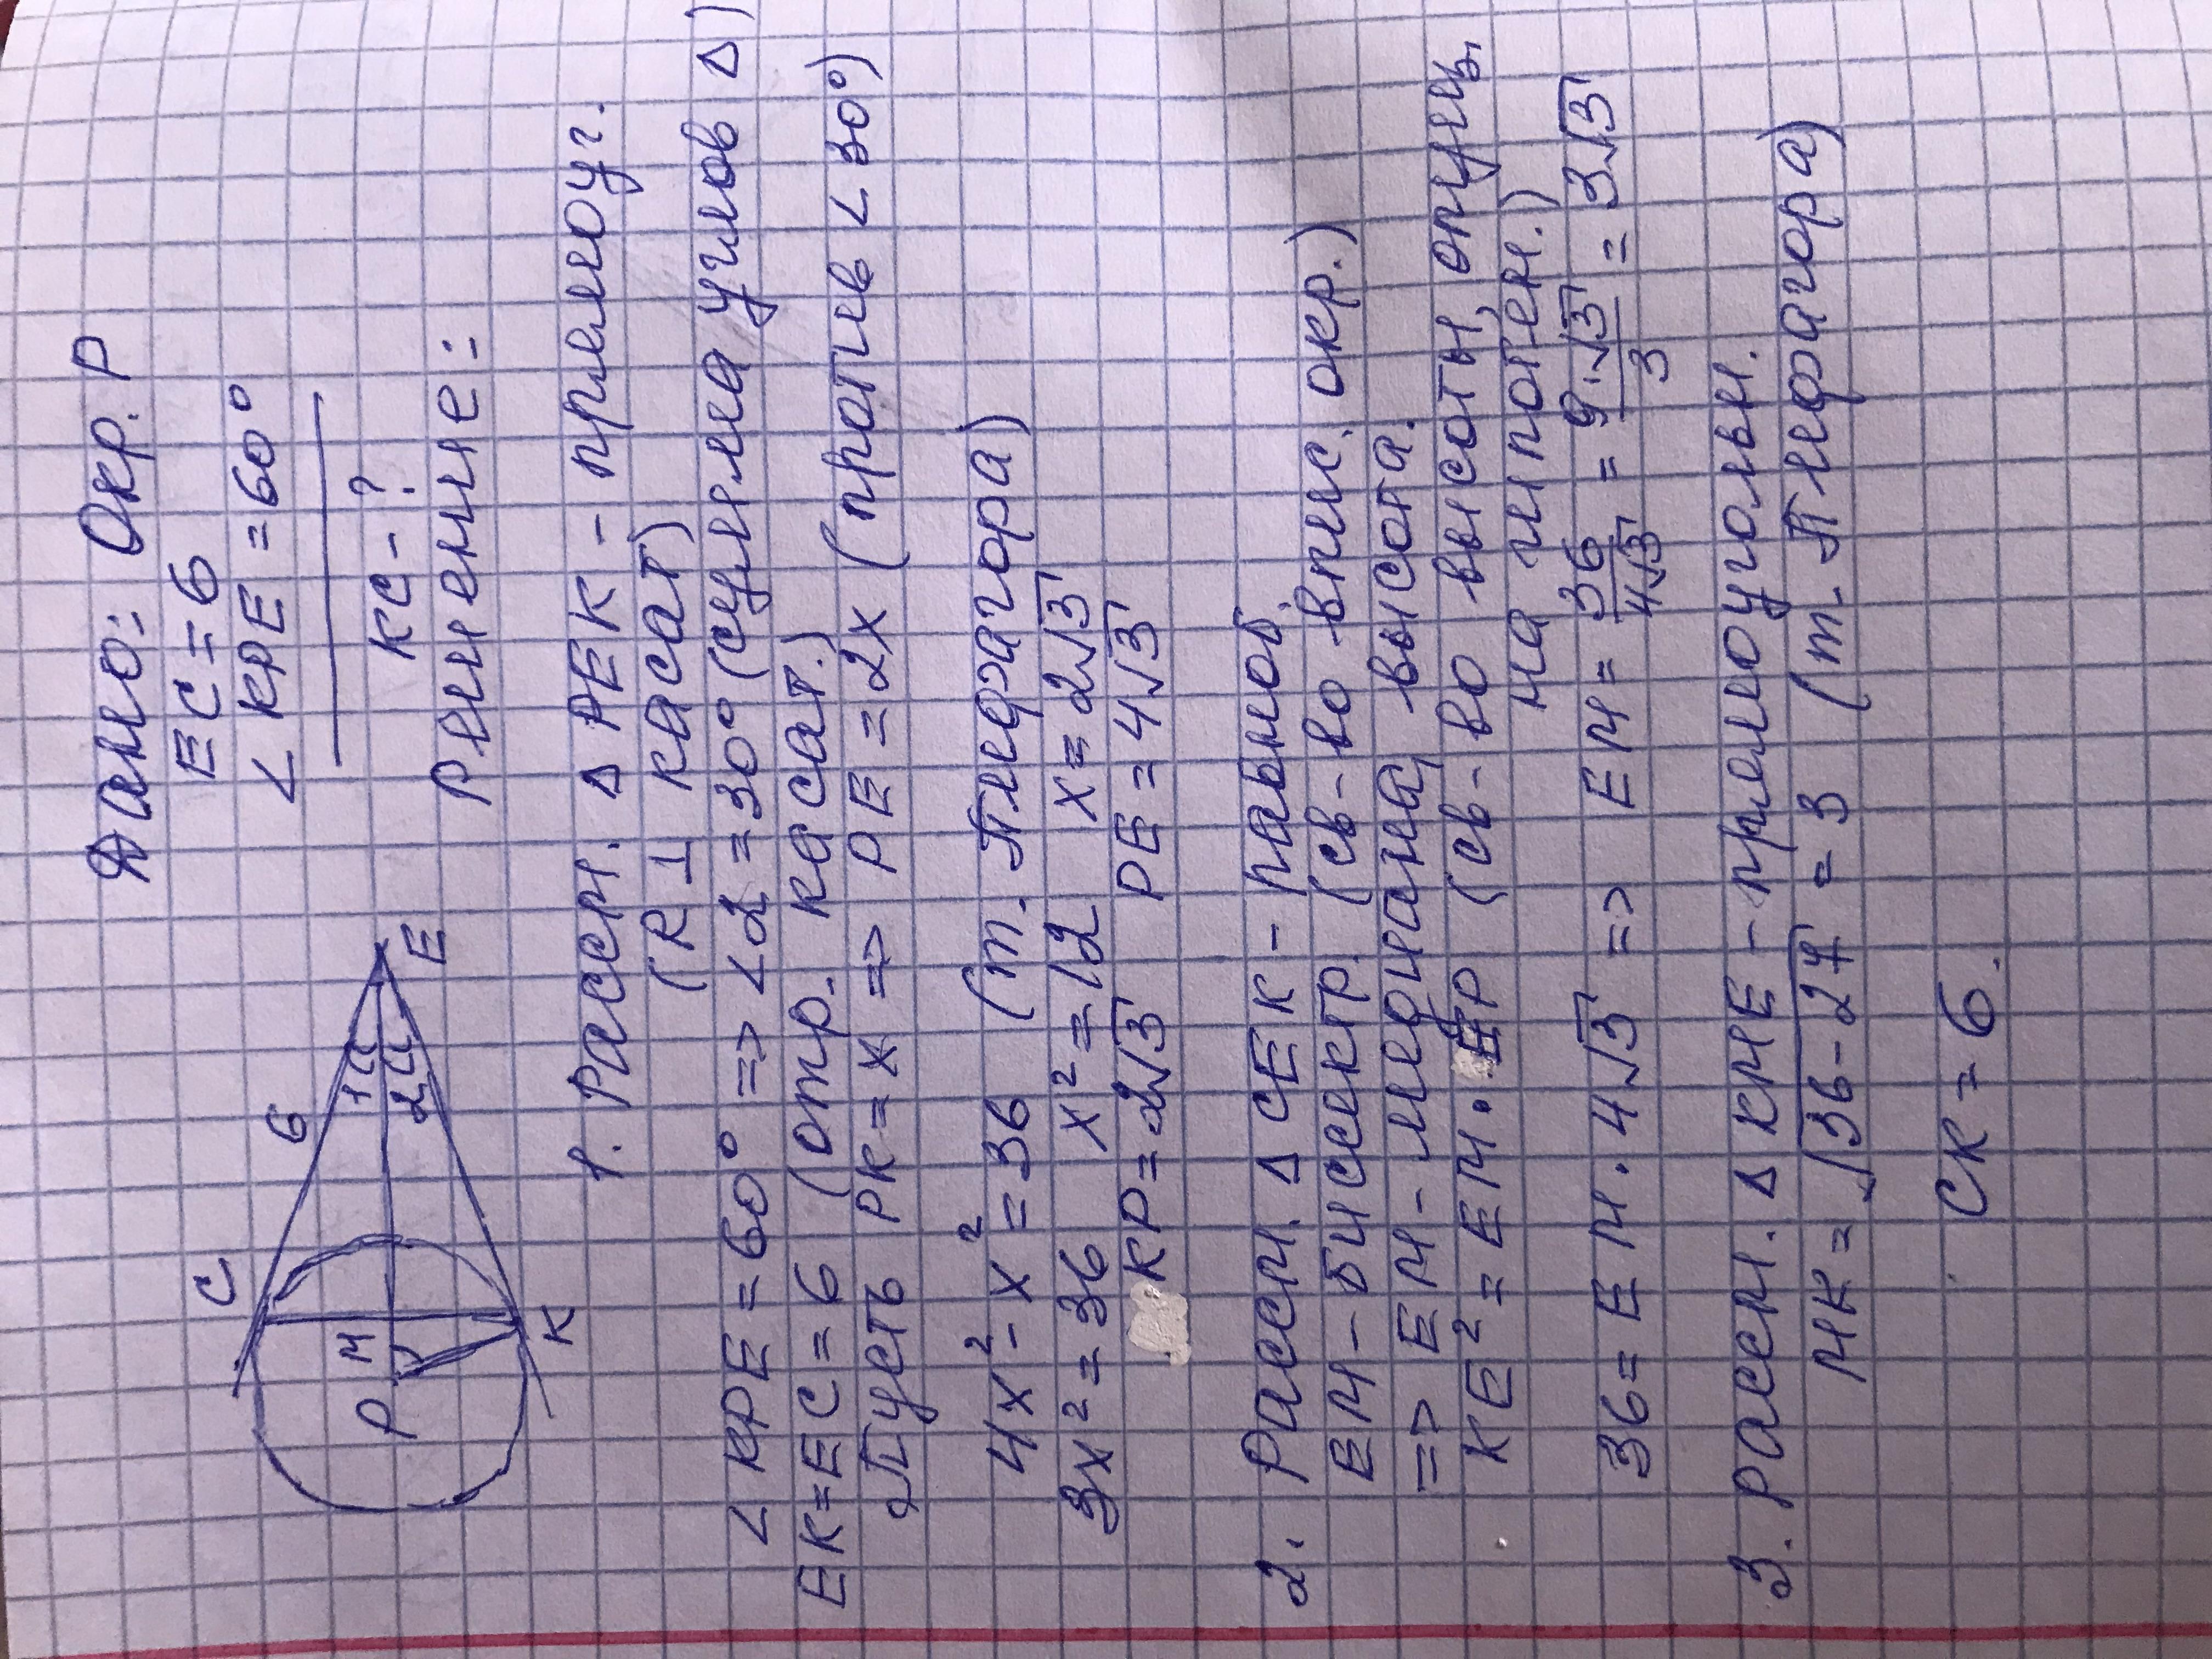 Дано: Окр. P
EC = 6
∠ KPE = 60°
KC - ?
Решение:
C
6
P
M
1
2
E
K
1. Рассм. Δ PEK - прямоуг.
(R ⊥ касат)
∠ KPE = 60° => ∠2 = 30° (сумма углов Δ)
EK = EC = 6 (отр. касат.)
Пусть PK = x => PE = 2x (против ∠ 30°)
4x² - x² = 36 (т. Пифагора)
3x² = 36 x² = 12 x = 2√3
KP = 2√3 PE = 4√3
2. Рассм. Δ CEK - равноб.
EM - биссектр. (св-во впис. окр.)
=> EM - медиана, высота.
KE² = EM · EP (св-во высоты, опущ.
на гипотен.)
36 = EM · 4√3 => EM = 36/4√3 = 9·√3/3 = 3√3
3. Рассм. Δ KME - прямоугольн.
MK = √36-27 = 3 (т. Пифагора)
CK = 6.